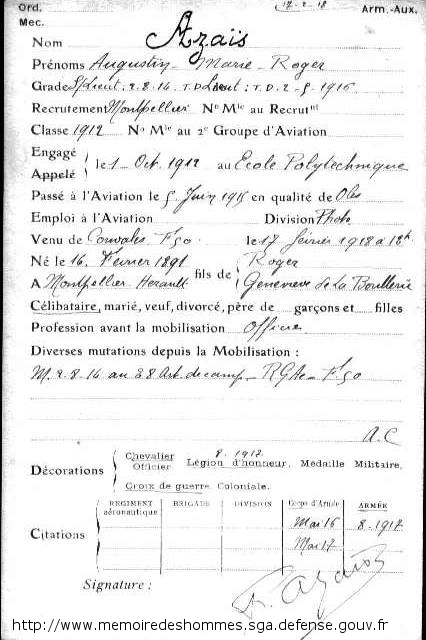 Ord. 17-2-18 Arm.-Aux.
Mec.
Nom Azaïs
Prénoms Augustin - Marie - Roger
Grade S/Lieut: 2.8.14. T.D Lieut: T.D. 2-5-1916
Recrutement Montpellier No Mle au Recrutnt
Classe 1912 No Mle au 2e Groupe d'Aviation
Engagé
Appelé
le 1 Oct. 1912 au Ecole Polytechnique
Passé à l'Aviation le 5 Juin 1915 en qualité de Obs
Emploi à l'Aviation Division Photo
Venu de le 17 février 1918 a 18h
Né le 16 Fevrier 1891 fils de Roger
A Montpellier Herault Genevieve de la Bouillerie
Célibataire, marié, veuf, divorcé, père de garçons et filles
Profession avant la mobilisation Officier
Diverses mutations depuis la Mobilisation :
M. 2.8.14 au 38 Art. de camp - RGAe -
A.C
Décorations
Chevalier 8.1917
Officier Légion d'honneur, Médaille Militaire,
Croix de guerre Coloniale.
Citations
RÉGIMENT aéronautique BRIGADE DIVISION Corps d'Armée ARMÉE
Mai 16 8-1917
Mai 17
Signature : R. Azaïs
http://www.memoiredeshommes.sga.defense.gouv.fr